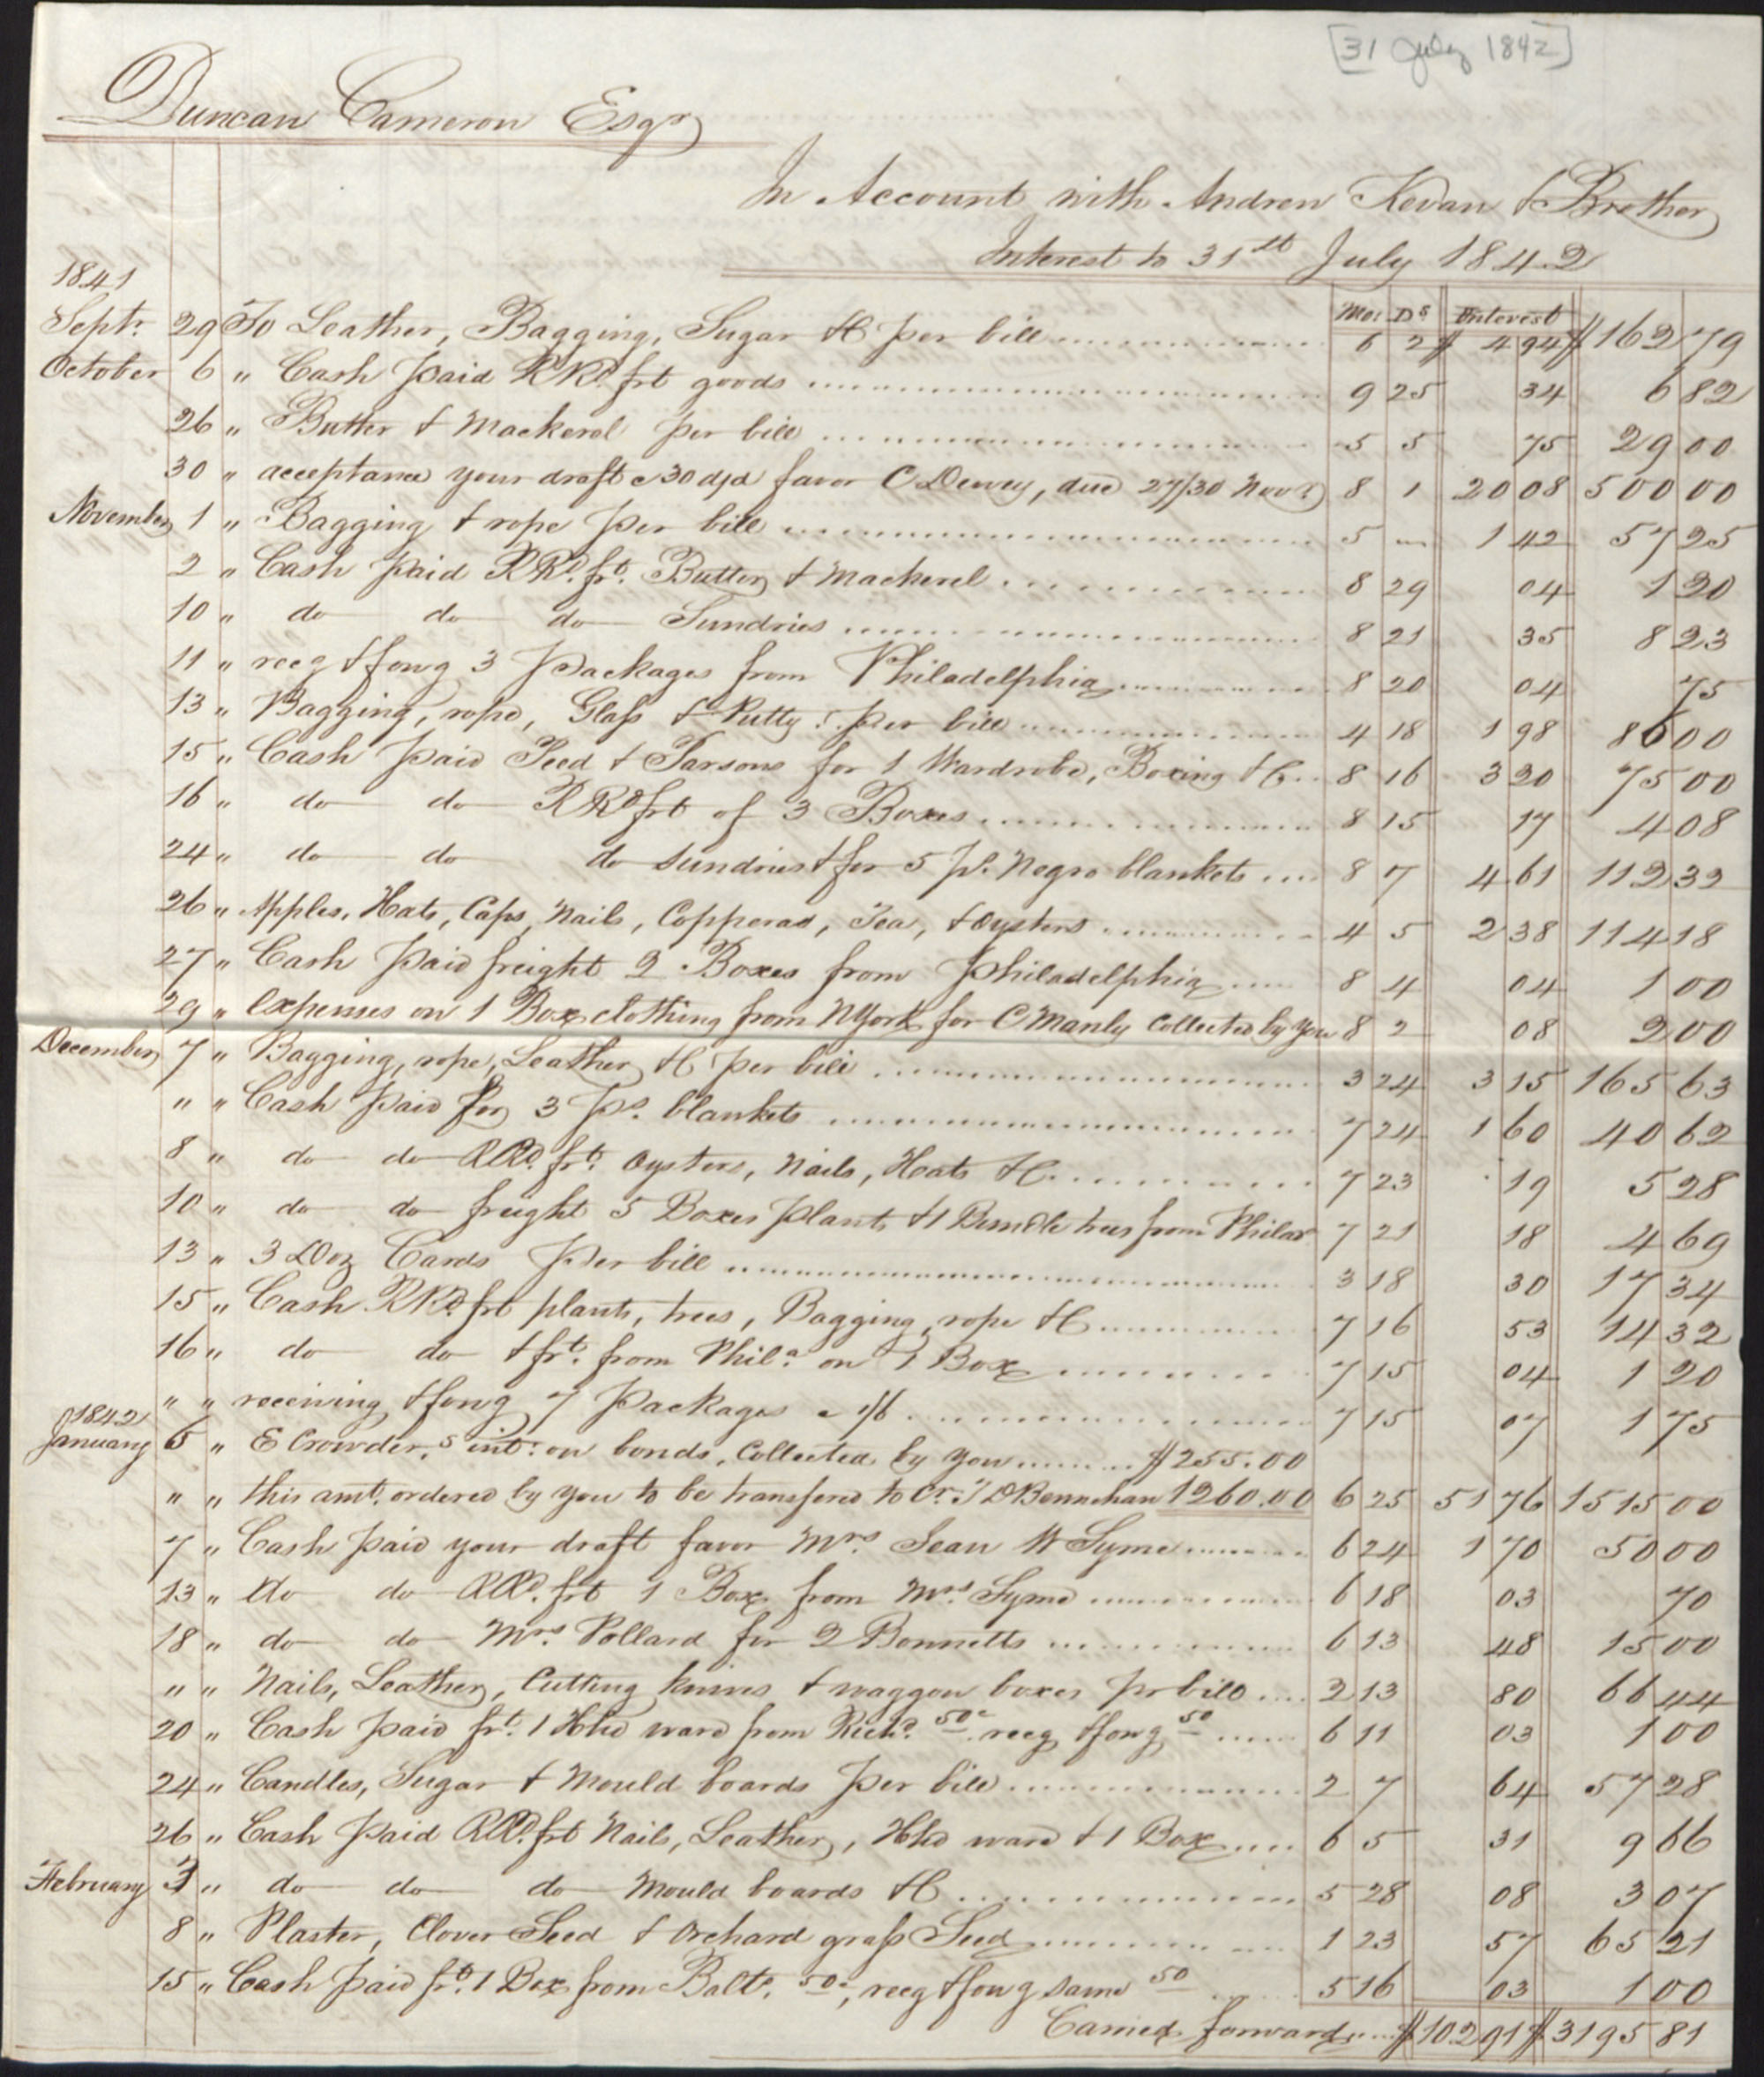 [31 July 1842]
Duncan Cameron Esqr
In Account with Andrew Kevan & Brother
Interest to 31st July 1842
1841
Mo: Ds Interest
Septr 29 To Leather, Bagging, Sugar &c per bill 6 2 $ 4 94 $ 162 79
October 6 " Cash paid RRd frt goods 9 25 34 6 82
26 " Butter & Mackerel per bill 5 5 75 29 00
30 " acceptance your draft @ 30 d/d favor C Dewey, due 27/30 Novr 8 1 20 08 500 00
November 1 " Bagging & rope per bill 5 " 1 42 57 25
2 " Cash paid RRd. frt. Butter & Mackerel 8 29 04 1 20
10 " do do do Sundries 8 21 35 8 23
11 " recg & forwg 3 Packages from Philadelphia 8 20 04 75
13 " Bagging, rope, Glass & Putty per bill 4 18 1 98 86 00
15 " Cash paid Peed & Parsons for 1 Wardrobe, Boxing &c 8 16 3 20 75 00
16 " do do RRd frt of 3 Boxes 8 15 17 4 08
24 " do do do Sundries & for 5 ps. Negro blankets 8 7 4 61 112 32
26 " Apples, Hats, Caps, Nails, Copperas, Tea, & Oysters 4 5 2 38 114 18
27 " Cash paid freight 2 Boxes from Philadelphia 8 4 04 1 00
29 " Expenses on 1 Box clothing from NYork for C Manly Collected by you 8 2 08 2 00
December 7 " Bagging, rope, Leather &c per bill 3 24 3 15 165 63
" " Cash paid for 3 ps. blankets 7 24 1 60 40 62
8 " do do RRd. frt. Oysters, Nails, Hats &c 7 23 19 5 28
10 " do do freight 5 Boxes Plants & 1 Bundle trees from Philaa 7 21 18 4 69
13 " 3 Doz Cards per bill 3 18 30 17 34
15 " Cash RRd. frt plants, trees, Bagging, rope &c 7 16 53 14 32
16 " do do & frt. from Phila. on 1 Box 7 15 04 1 20
" " receiving & forwg 7 Packages @ 1/6 7 15 07 1 75
1842
January 5 " E Crowder,s int: on bonds, Collected by you $255.00
" " this amt. ordered by you to be transfered to Cr. T D Bennehan 1260.00 6 25 51 76 1515 00
7 " Cash paid your draft favor Mrs. Jean M Syme 6 24 1 70 50 00
13 " do do RRd. frt 1 Box from Mrs Syme 6 18 03 70
18 " do do Mrs. Pollard for 2 Bonnetts 6 13 48 15 00
" " Nails, Leather, Cutting knives & waggon boxes pr bill 2 13 80 66 44
20 " Cash paid frt. 1 Hhd ware from Richd. 50c recg & forwg 50 6 11 03 1 00
24 " Candles, Sugar & Mould boards per bill 2 7 64 57 28
26 " Cash paid RRd. frt Nails, Leather, Hhd ware & 1 Box 6 5 31 9 66
February 3 " do do do Mould boards &c 5 28 08 3 07
8 " Plaster, Clover Seed & Orchard grass Seed 1 23 57 65 21
15 " Cash paid frt. 1 Box from Balto. 50c, recg & forwg same 50 5 16 03 1 00
Carried forward $102 91 $3195 81